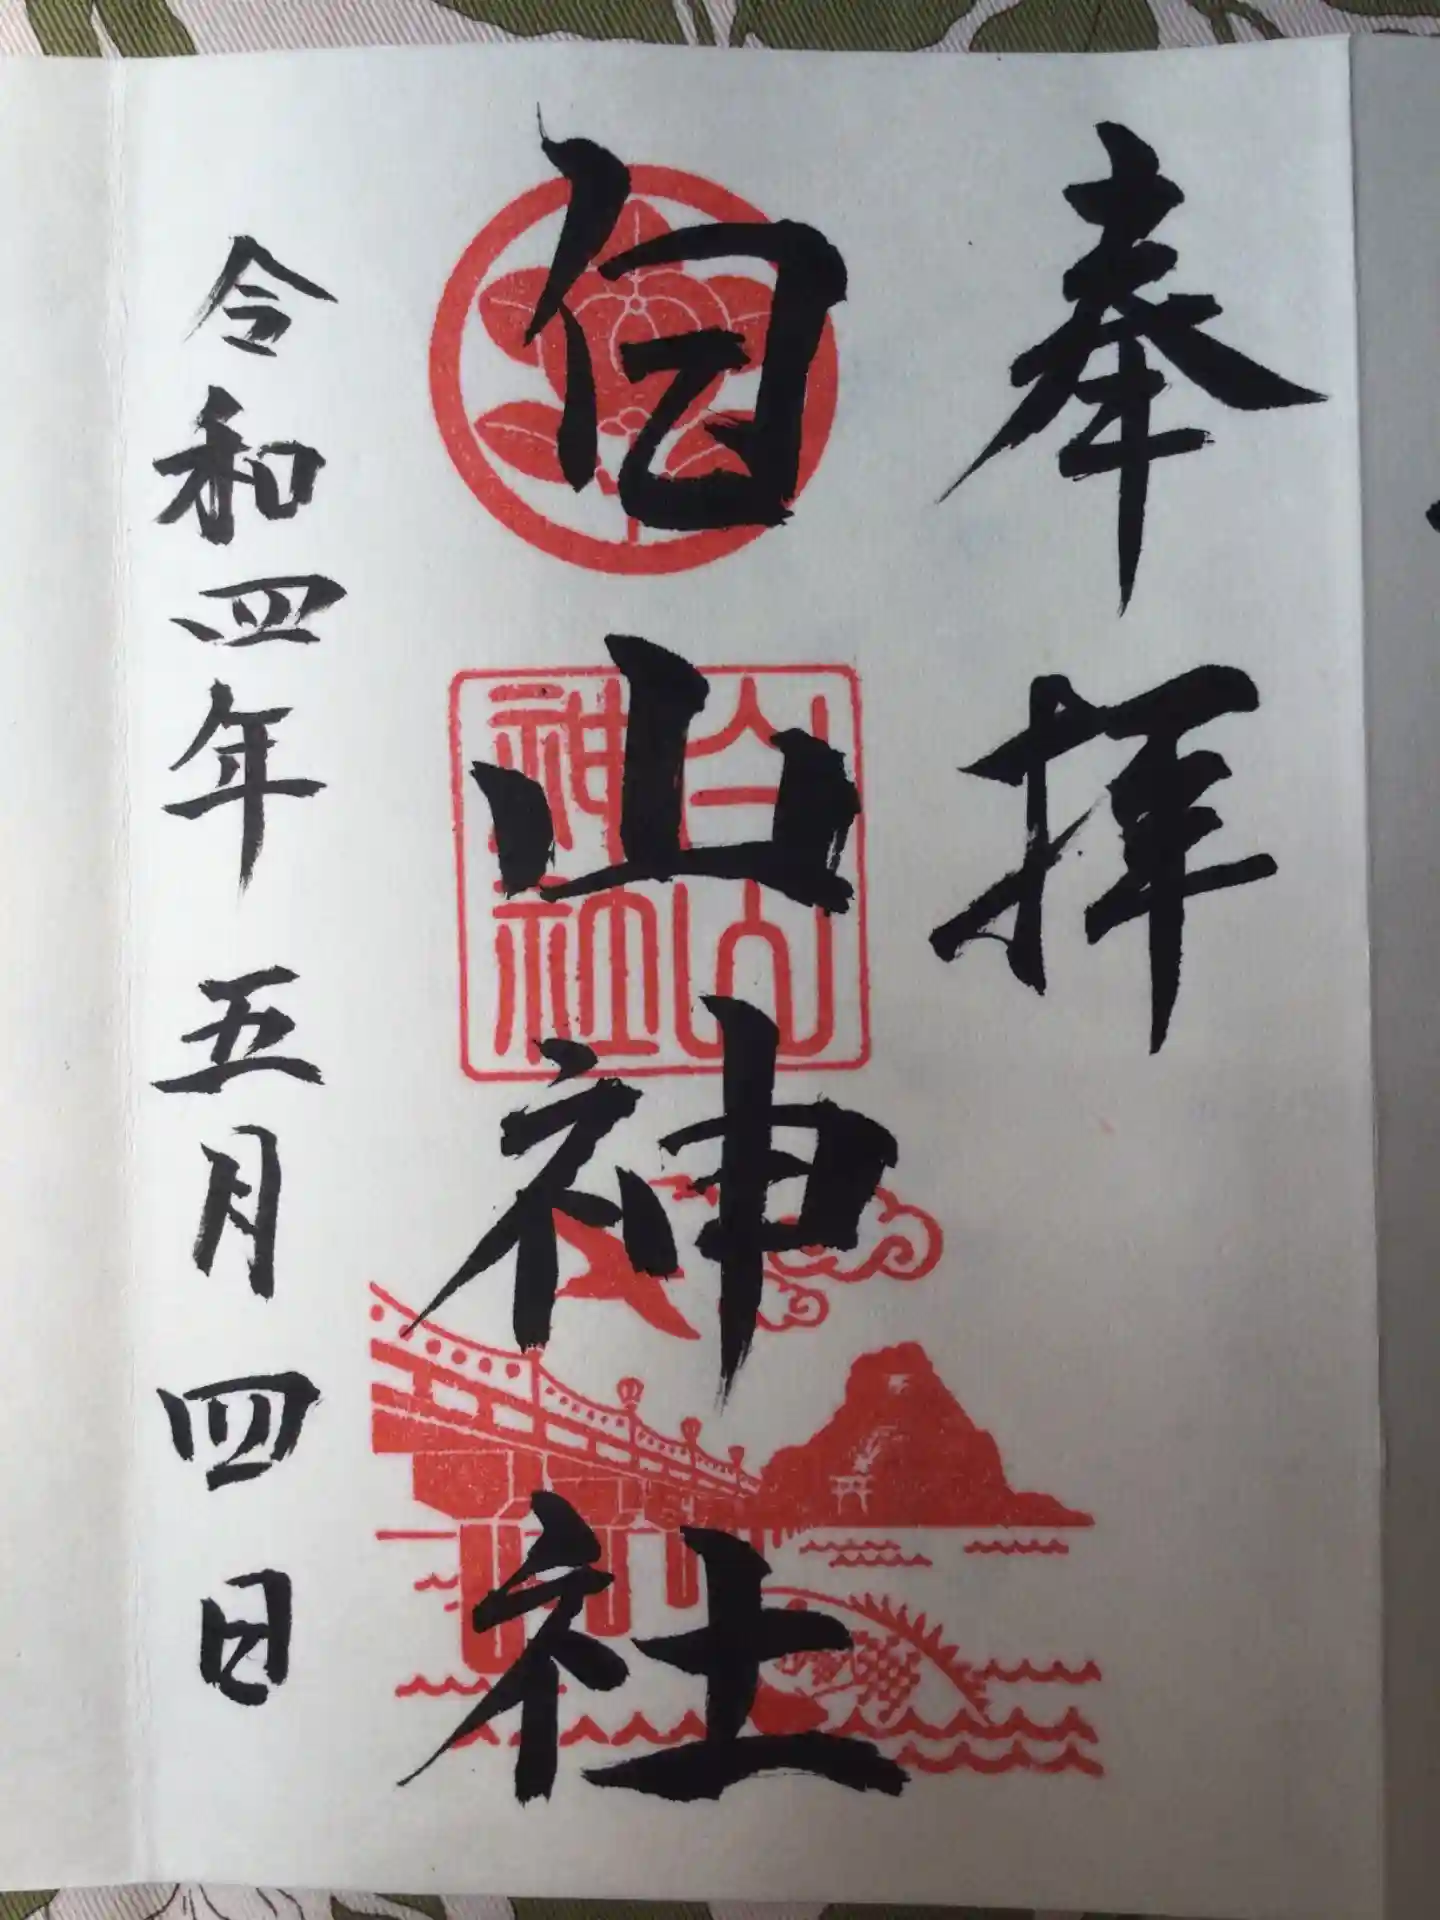 奉拝
白山神社
白山神社
令和四年五月四日